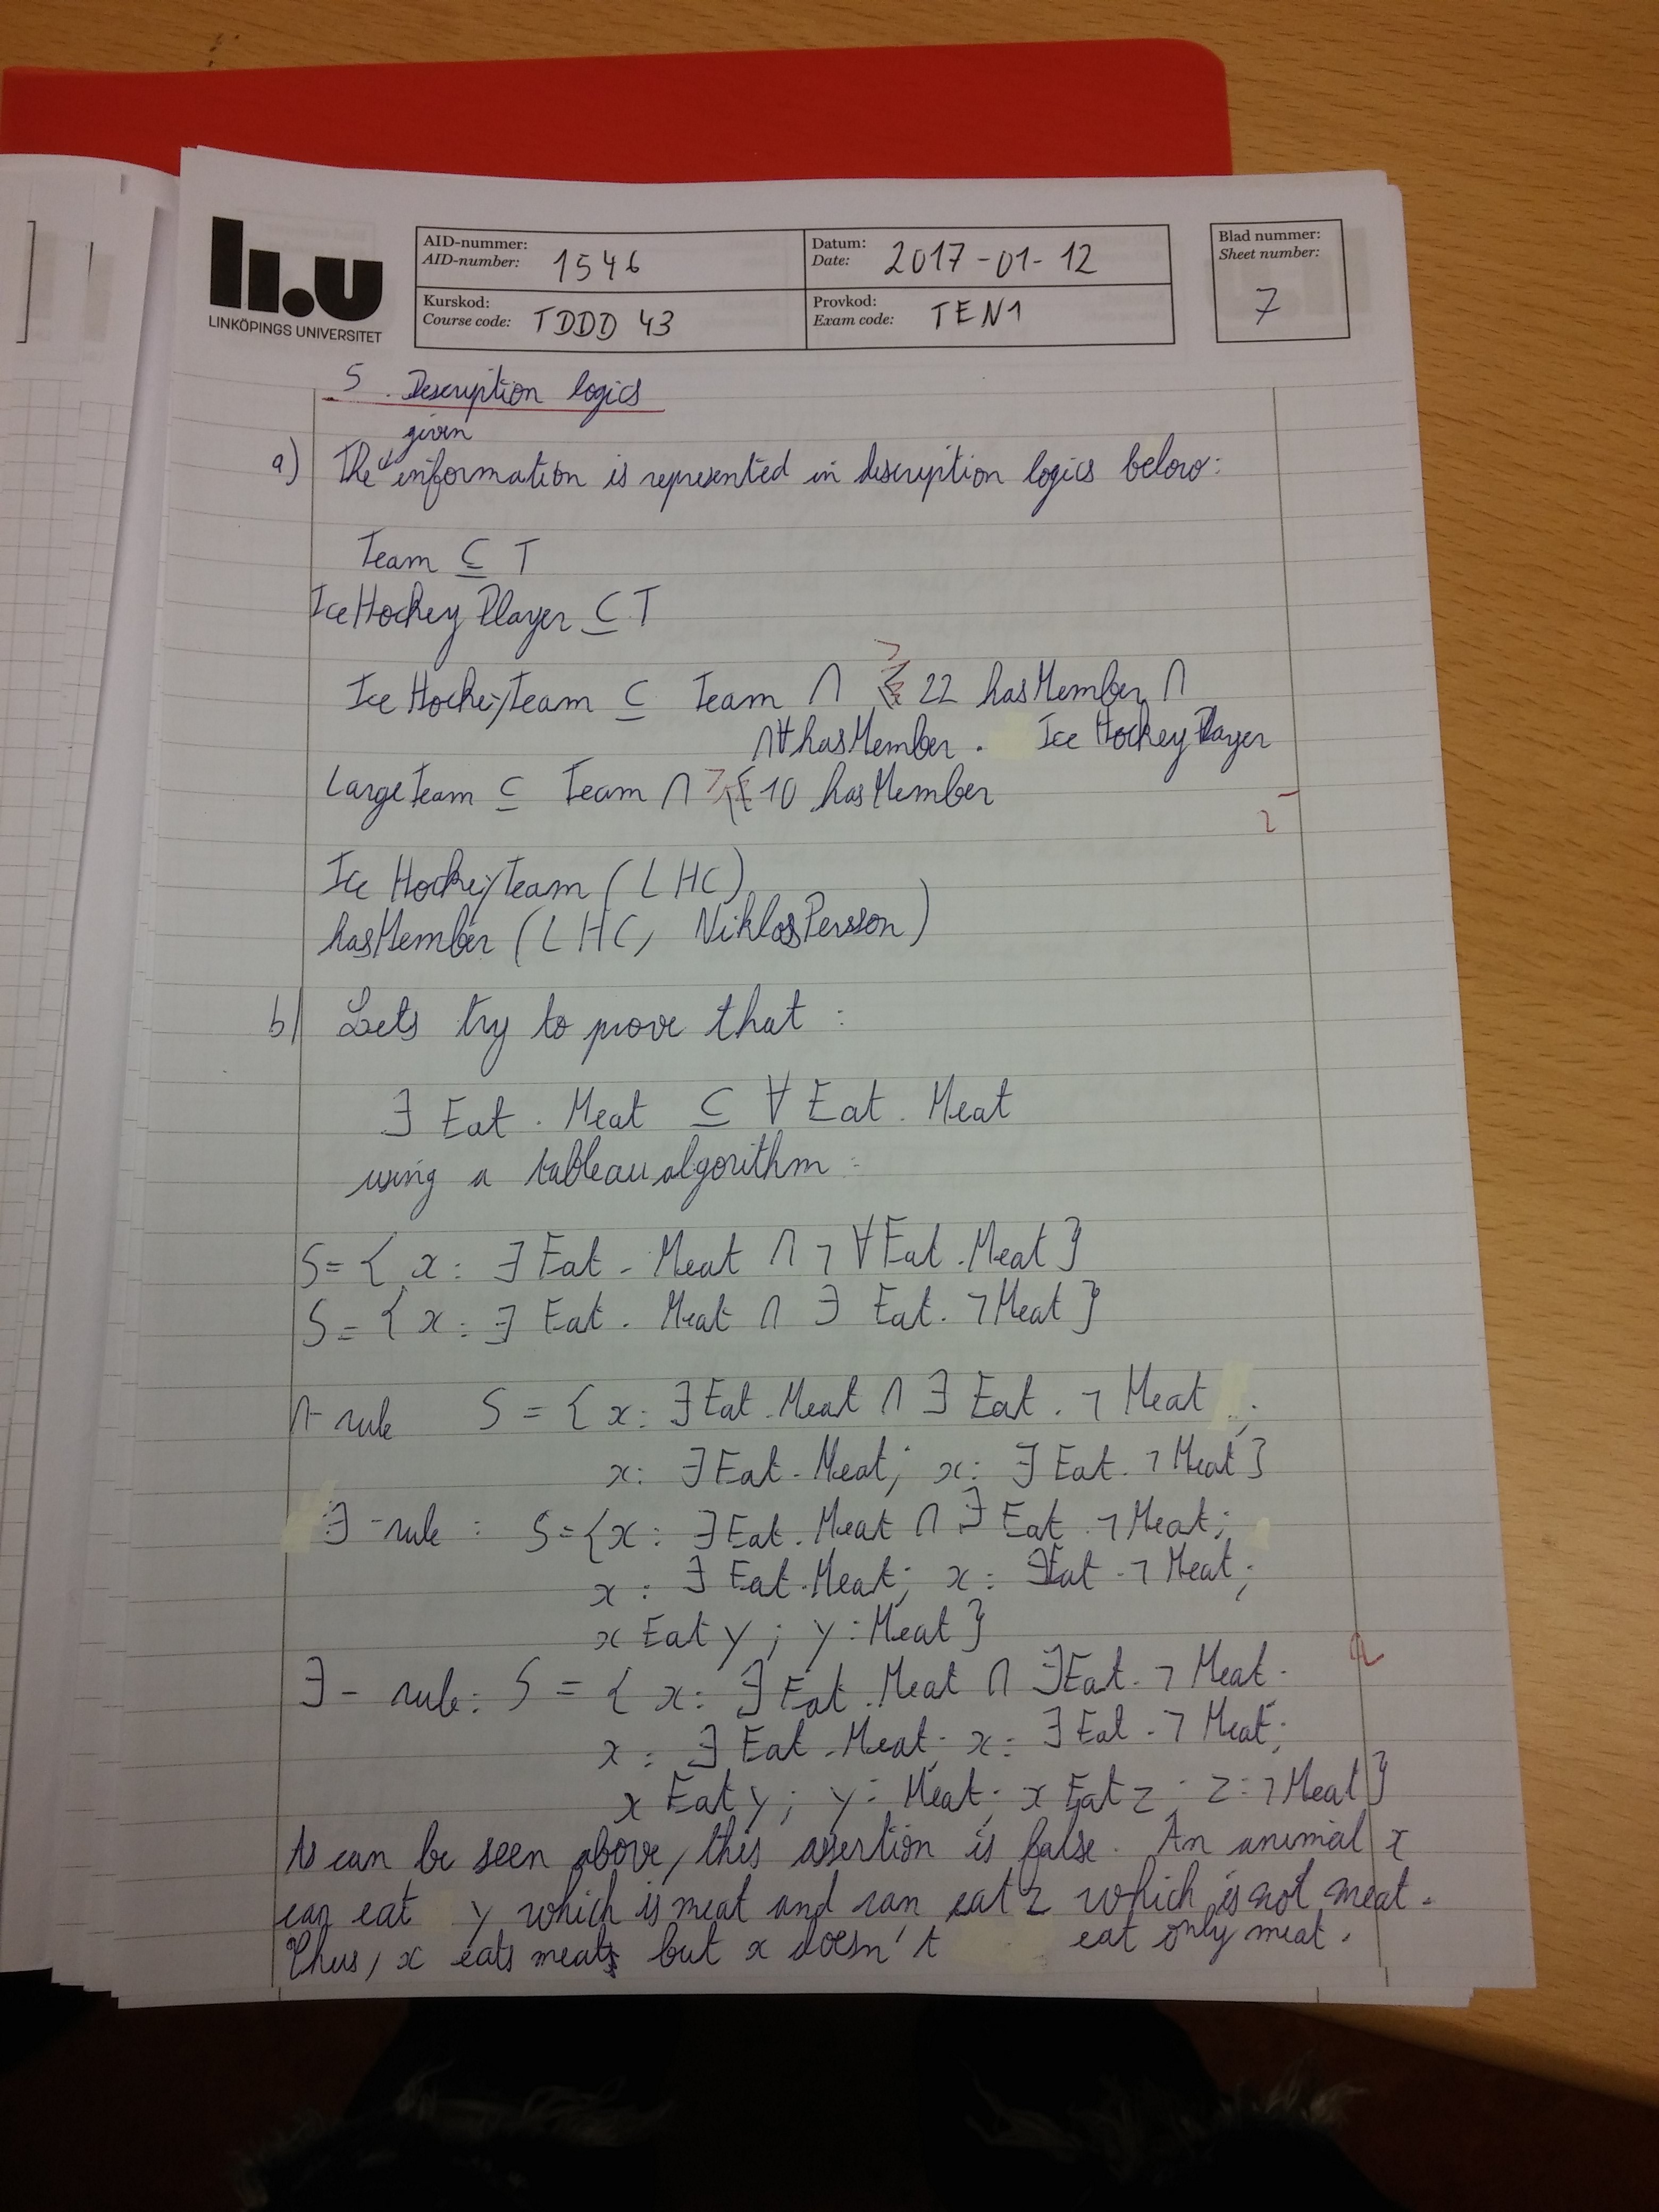 li.u
LINKÖPINGS UNIVERSITET
AID-nummer:
AID-number: 1546
Datum:
Date: 2017-01-12
Kurskod:
Course code: TDDD 43
Provkod:
Exam code: TEN1
Blad nummer:
Sheet number:
7
5. Description logics
given
a) The information is represented in description logics below:
Team ⊆ T
IceHockeyPlayer ⊆ T
Ice HockeyTeam ⊆ Team ∩ ≥ 22 hasMember ∩
∩ ∀ hasMember . Ice HockeyPlayer
LargeTeam ⊆ Team ∩ ≥ 10 hasMember
2-
Ice HockeyTeam (LHC)
hasMember (LHC, NiklasPersson)
b) Lets try to prove that :
∃ Eat . Meat ⊆ ∀ Eat . Meat
using a tableau algorithm :
S = { x : ∃ Eat . Meat ∩ ¬ ∀ Eat . Meat }
S = { x : ∃ Eat . Meat ∩ ∃ Eat . ¬ Meat }
∩-rule S = { x : ∃ Eat . Meat ∩ ∃ Eat . ¬ Meat ;
x : ∃ Eat . Meat ; x : ∃ Eat . ¬ Meat }
∃-rule : S = { x : ∃ Eat . Meat ∩ ∃ Eat . ¬ Meat ;
x : ∃ Eat . Meat ; x : ∃ Eat . ¬ Meat ;
x Eat y ; y : Meat }
2
∃-rule : S = { x : ∃ Eat . Meat ∩ ∃ Eat . ¬ Meat .
x : ∃ Eat . Meat ; x : ∃ Eat . ¬ Meat ;
x Eat y ; y : Meat ; x Eat z ; z : ¬ Meat }
As can be seen above, this assertion is false. An animal x
can eat y which is meat and can eat z which is not meat.
Thus, x eats meats but x doesn't eat only meat.